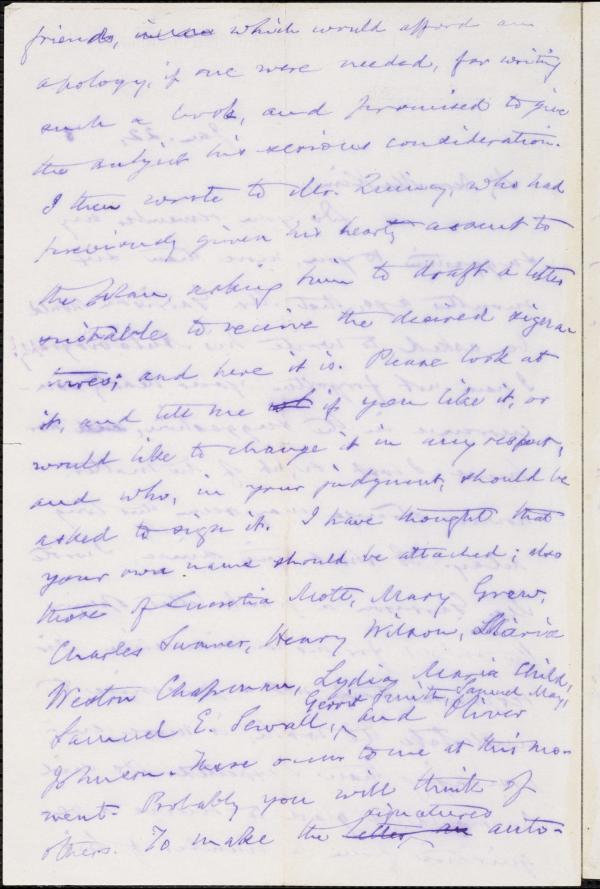 friends, which would afford an
apology, if one were needed, for writing
such a book, and promised to give
the subject his serious consideration.
I then wrote to Mr. Quincy, who had
previously given his hearty assent to
the plan, asking him to draft a letter
suitable to receive the desired signa-
tures; and here it is. Please look at
it, and tell me if you like it, or
would like to change it in any respect,
and who, in your judgment, should be
asked to sign it. I have thought that
your own name should be attached; also
those of Lucretia Mott, Mary Grew,
Charles Sumner, Henry Wilson, Maria
Weston Chapman, Lydia Maria Child,
Gerrit Smith, Samuel May,
Samuel E. Sewall, and Oliver
Johnson. These occur to me at this mo-
ment. Probably you will think of
signatures
others. To make the letter an auto-